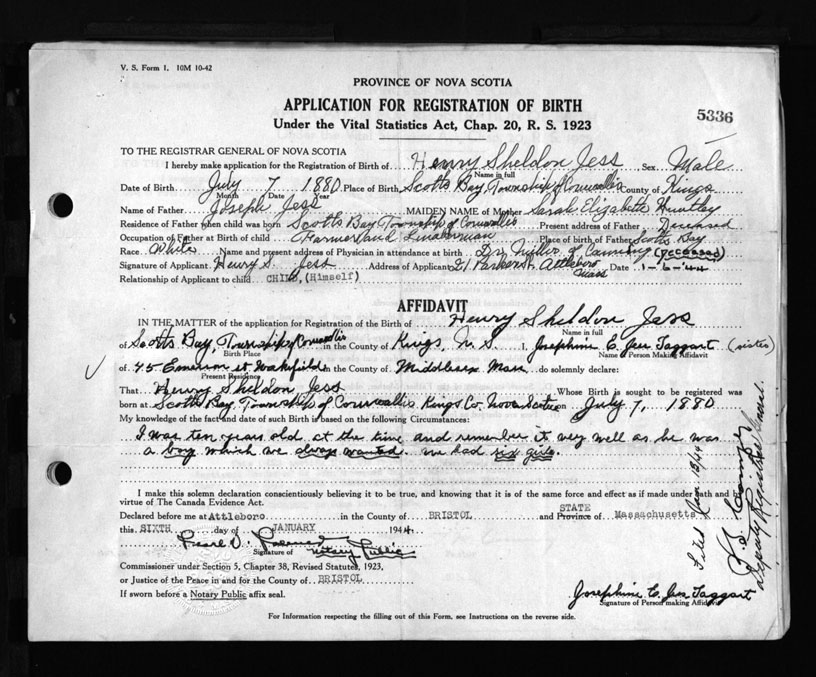 V. S. Form 1. 10M 10-42
PROVINCE OF NOVA SCOTIA
APPLICATION FOR REGISTRATION OF BIRTH
5336
Under the Vital Statistics Act, Chap. 20, R. S. 1923
TO THE REGISTRAR GENERAL OF NOVA SCOTIA
I hereby make application for the Registration of Birth of Henry Sheldon Jess Sex Male
Name in full
Date of Birth July 7 1880 Place of Birth Scotts Bay, Township of Cornwallis County of Kings
Month Date Year
Name of Father Joseph Jess MAIDEN NAME of Mother Sarah Elizabeth Huntley
Residence of Father when child was born Scotts Bay Township of Cornwallis Present address of Father Deceased
Occupation of Father at Birth of child Farmer and Lumberman Place of birth of Father Scotts Bay
Race White Name and present address of Physician in attendance at birth Dr. Miller of Canning (Deceased)
Signature of Applicant Henry S. Jess Address of Applicant 21 Parker St. Attleboro Mass Date 1-6-44
Relationship of Applicant to child CHILD, (Himself)
AFFIDAVIT
IN THE MATTER of the application for Registration of the Birth of Henry Sheldon Jess
Name in full
of Scotts Bay, Township of Cornwallis in the County of Kings, N.S. I, Josephine C. Jess Taggart (sister)
Birth Place Name of Person Making Affidavit
of 45 Emerson st Wakefield in the County of Middlesex Mass do solemnly declare:
Present Residence
That Henry Sheldon Jess Whose Birth is sought to be registered was
born at Scotts Bay, Township of Cornwallis Kings Co. Nova Scotia on July 7, 1880
My knowledge of the fact and date of such Birth is based on the following Circumstances:
I was ten years old at the time and remember it very well as he was
a boy which we always wanted. we had six girls.
I make this solemn declaration conscientiously believing it to be true, and knowing that it is of the same force and effect as if made under oath and by
virtue of The Canada Evidence Act.
STATE
Declared before me at Attleboro in the County of BRISTOL and Province of Massachusetts
this SIXTH day of JANUARY 1944
Pearl
Signature of Notary Public
Commissioner under Section 5, Chapter 38, Revised Statutes, 1923.
or Justice of the Peace in and for the County of BRISTOL
If sworn before a Notary Public affix seal.
Josephine C. Jess Taggart
Signature of Person making Affidavit
For Information respecting the filling out of this Form, see Instructions on the reverse side.
Filed Jan 13/44
Deputy Registrar General.